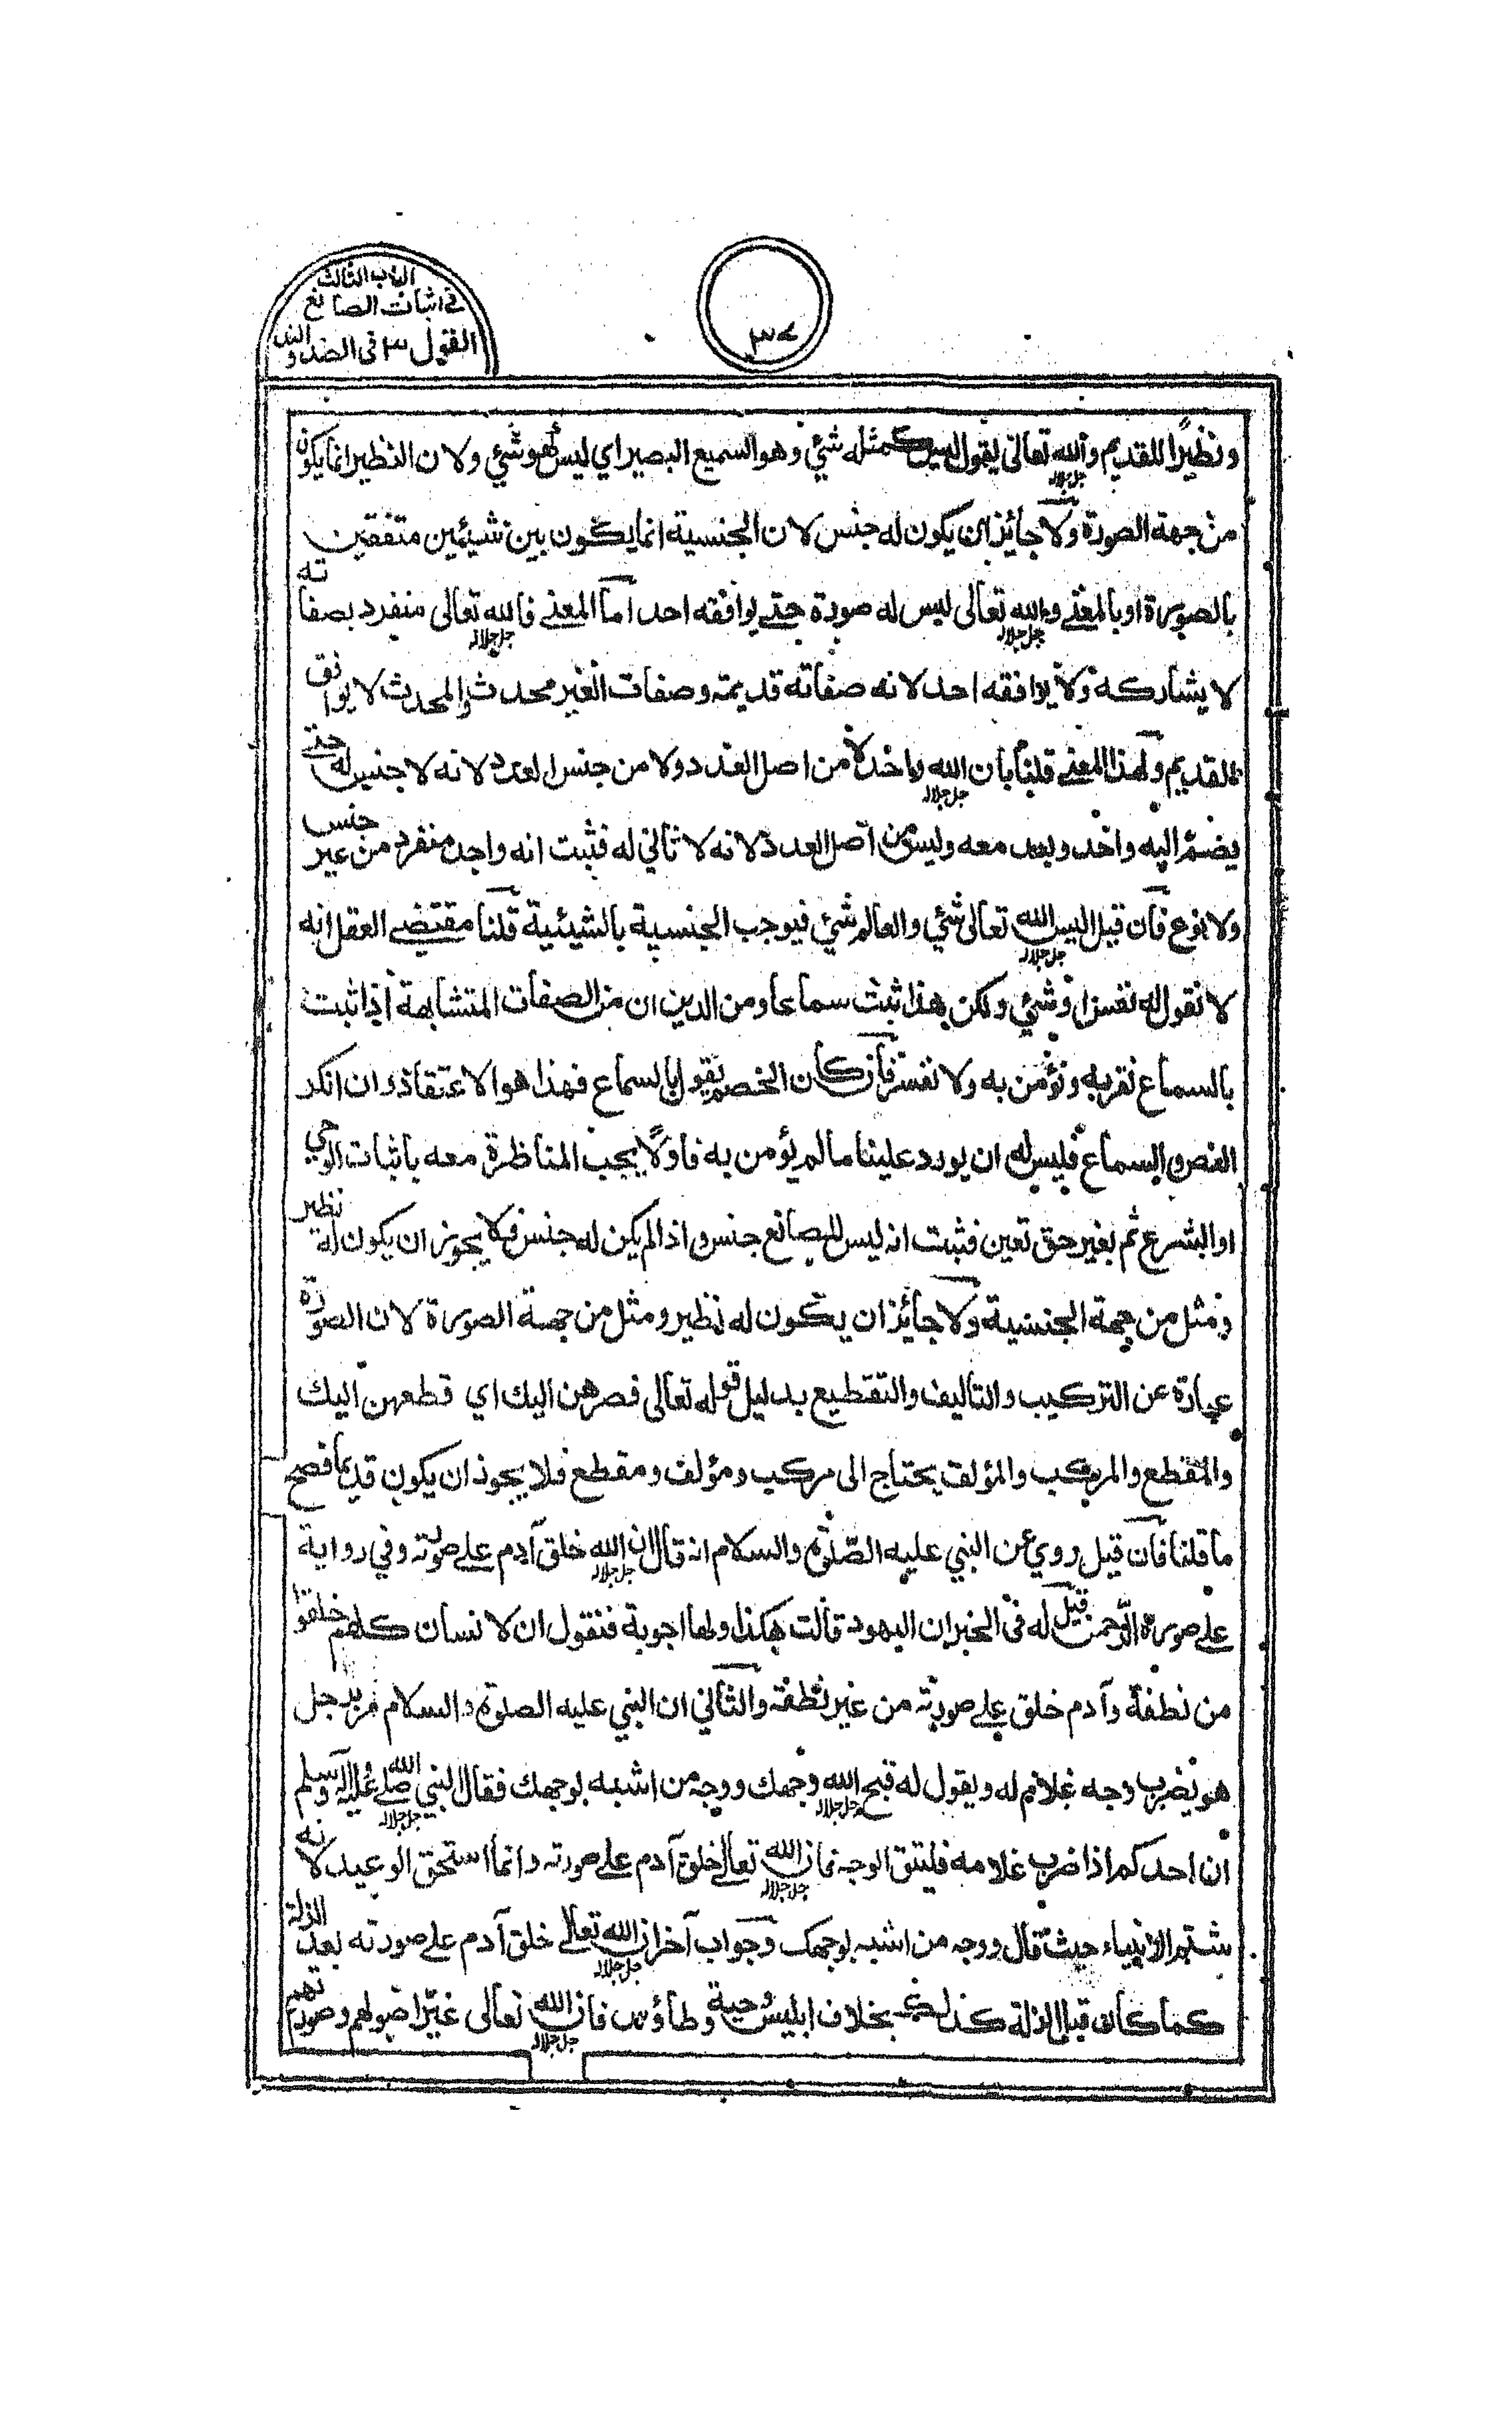 الباب الثالث
في اثبات الصانع
القول ٣ في الضد والند
٣٧
ونظيرا للقديم والله تعالى يقول ليس كمثله شيء وهو السميع البصير اي ليس كهو شيء ولان النظير انما يكون
جل جلاله
من جهة الصورة ولا جائز ان يكون له جنس لان الجنسية انما يكون بين شيئين متفقين
بالصورة او بالمعنى والله تعالى ليس له صورة حتى يوافقه احد اما المعنى فالله تعالى منفرد بصفاته
جل جلاله جل جلاله
لا يشاركه ولا يوافقه احد لانه صفاته قديمة وصفات الغير محدث والمحدث لا يوافق
بالقديم ولهذا المعنى قلنا بان الله واحد لا من اصل العدد ولا من جنس العدد لانه لا جنس له حتى
جل جلاله
يضم اليه واحد ويعد معه وليس من اصل العدد لانه لا ثاني له فثبت انه واحد منفرد من غير جنس
ولا نوع فان قيل اليس الله تعالى شيء والعالم شيء فيوجب الجنسية بالشيئية قلنا مقتضى العقل انه
جل جلاله
لا نقول له نفس او شيء ولكن بهذا ثبت سماعا ومن الدين ان من الصفات المتشابهة اذا ثبت
بالسماع نقر به ونؤمن به ولا نفسر فان كان الخصم يقول بالسماع فهذا هو الاعتقاد وان انكر
النص والسماع فليس له ان يورد علينا ما لم يؤمن به فاولا يجب المناظرة معه باثبات الوحي
او الشرع ثم بغير حق تعين فثبت انه ليس للصانع جنس واذا لم يكن له جنس فلا يجوز ان يكون له نظير
ومثل من جهة الجنسية ولا جائز ان يكون له نظير ومثل من جهة الصورة لان الصورة
عبارة عن التركيب والتاليف والتقطيع بدليل قوله تعالى فصرهن اليك اي قطعهن اليك
والمقطع والمركب والمؤلف يحتاج الى مركب ومؤلف ومقطع فلا يجوز ان يكون قديما فصح
ما قلنا فان قيل روي عن النبي عليه الصلوة والسلام انه قال ان الله خلق آدم على صورته وفي رواية
جل جلاله
على صورة الرحمن قيل له في الخبر ان اليهود قالت هكذا ولها اجوبة فنقول ان لانسان كلهم خلقوا
من نطفة وآدم خلق على صورته من غير نطفة والثاني ان النبي عليه الصلوة والسلام مر برجل
هو يضرب وجه غلام له ويقول له قبح الله وجهك ووجه من اشبه بوجهك فقال النبي صلى الله عليه وآله وسلم
جل جلاله جل جلاله
ان احدكم اذا ضرب غلامه فليتق الوجه فان الله تعالى خلق آدم على صورته وانما استحق الوعيد لانه
جل جلاله
شتم الانبياء حيث قال ووجه من اشبه بوجهك وجواب آخر ان الله تعالى خلق آدم على صورته بعد الزلة
جل جلاله
كما كان قبل الزلة كذلك بخلاف ابليس وحية وطاؤس فان الله تعالى غير اصولهم وصورتهم
جل جلاله